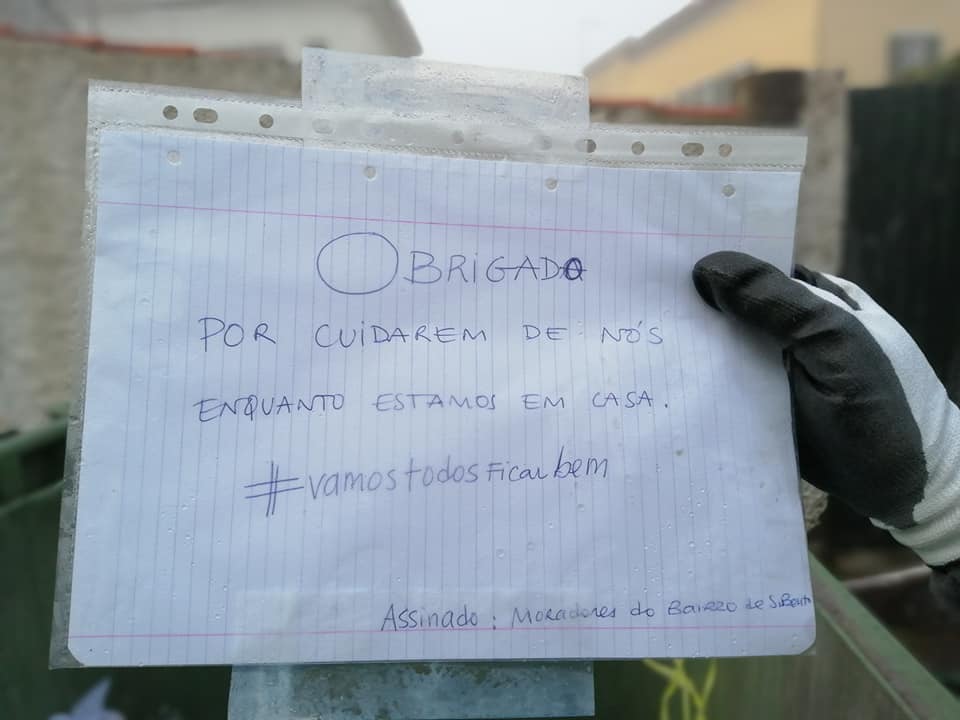 OBRIGADO
POR CUIDAREM DE NÓS
ENQUANTO ESTAMOS EM CASA.
#vamostodosFicarbem
Assinado: Moradores do Bairro de S.Bento